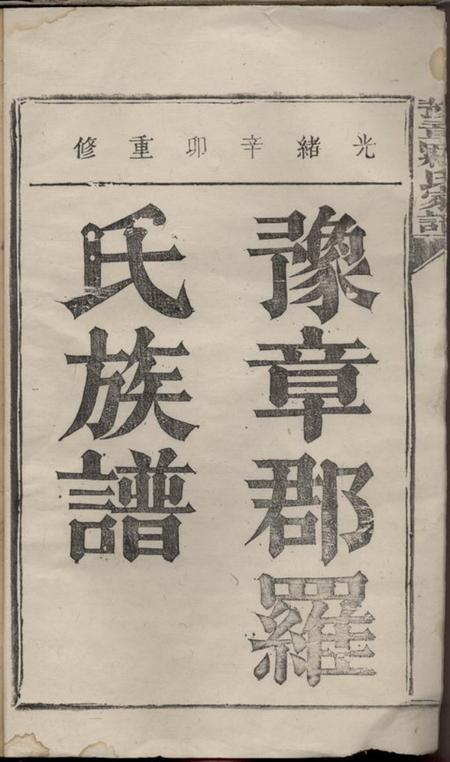 光緒辛卯重修
豫章郡羅
氏族譜